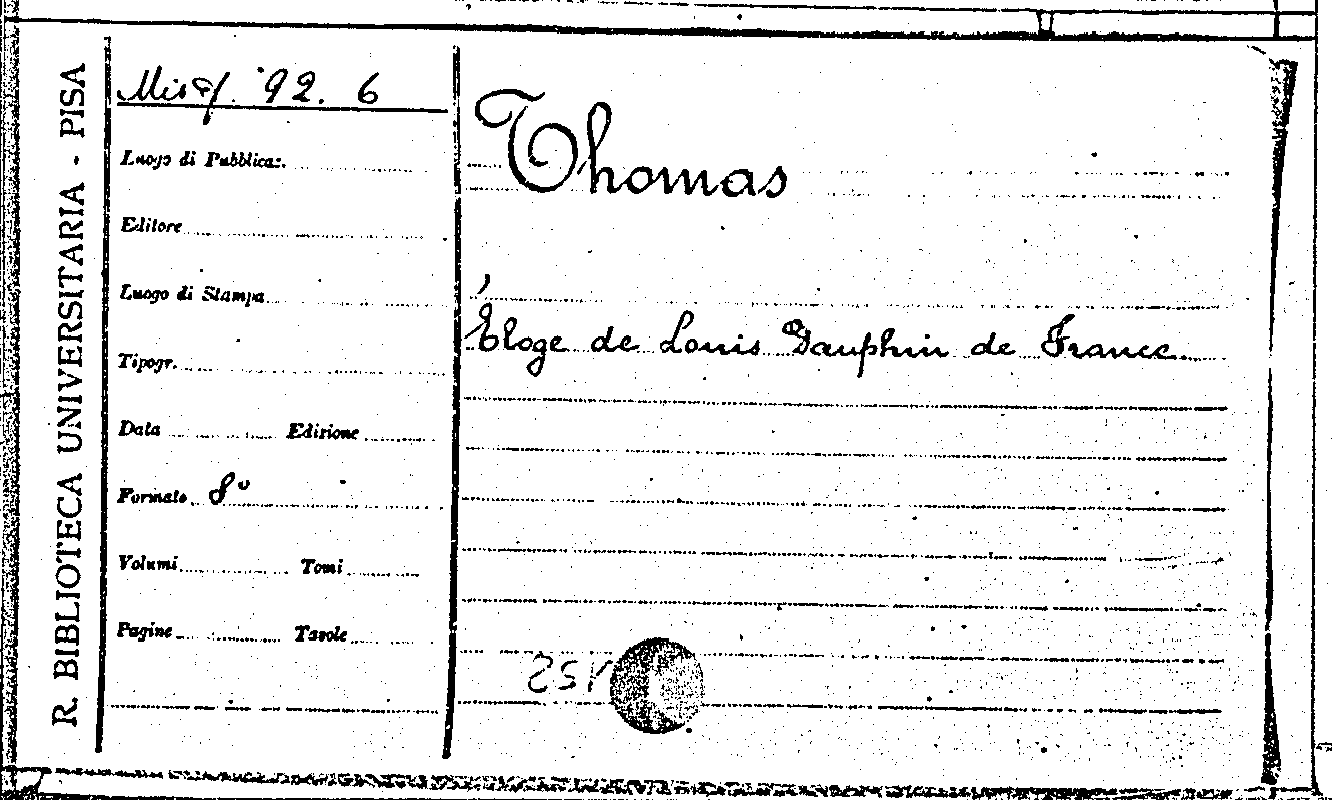 R. BIBLIOTECA UNIVERSITARIA - PISA
92. 6
Luogo di Pubblicaz.
Editore
Luogo di Stampa
Tipogr.
Data Edizione
Formato 8°
Volumi Tomi
Pagine Tavole
Thomas
Éloge de Louis Dauphin de France.